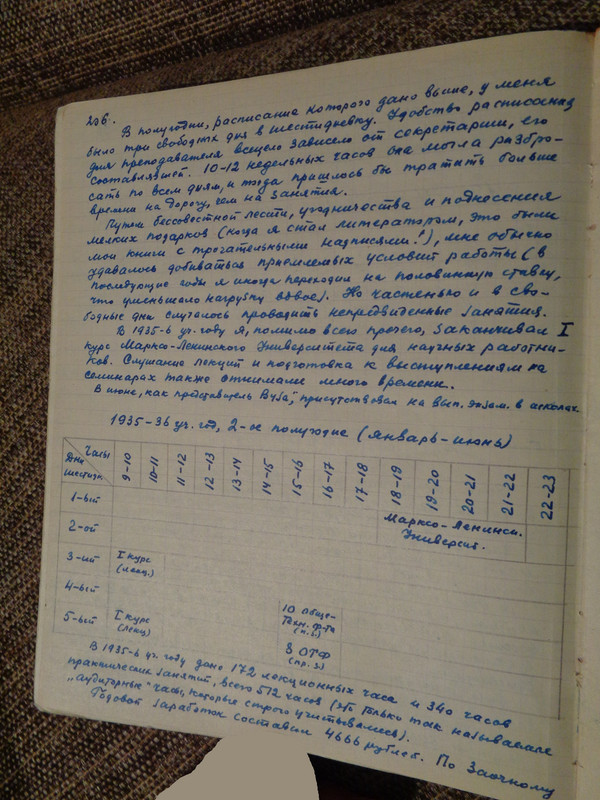 206.
В полугодии, расписание которого дано выше, у меня
было три свободных дня в шестидневку. Удобство расписания
для преподавателя всецело зависело от секретарши, его
составлявшей. 10-12 недельных часов она могла разбро-
сать по всем дням, и тогда пришлось бы тратить больше
времени на дорогу, чем на занятия.
Путем бессовестной лести, угодничества и поднесения
мелких подарков (когда я стал литератором, это были
мои книги с трогательными надписями!), мне обычно
удавалось добиваться приемлемых условий работы (в
последующие годы я иногда переходил на половинную ставку,
что уменьшало нагрузку вдвое). Но частенько и в сво-
бодные дни случалось проводить непредвиденные занятия.
В 1935-6 уч. году я, помимо всего прочего, заканчивал I
курс Марксо-Ленинского Университета для научных работни-
ков. Слушание лекций и подготовка к выступлениям на
семинарах также отнимали много времени.
В июне, как представитель Вуза, присутствовал на вып. экзам. в школах
1935-36 уч. год, 2-ое полугодие (январь-июнь)
Часы
Дни шестидн. 9-10 10-11 11-12 12-13 13-14 14-15 15-16 16-17 17-18 18-19 19-20 20-21 21-22 22-23
1-ый
2-ой Марксо-Ленинск.
Университ.
3-ий I курс
(лекц.)
4-ый 10 Обще-
Техн. ф-та
(п.з.)
5-ый I курс
(лекц) 3 ОТФ
(пр. з.)
В 1935-6 уч. году дано 172 лекционных часа и 340 часов
практических занятий, всего 512 часов (это только так называемые
„аудиторные" часы, которые строго учитывались).
Годовой заработок составил 4666 рублей. По Заочному